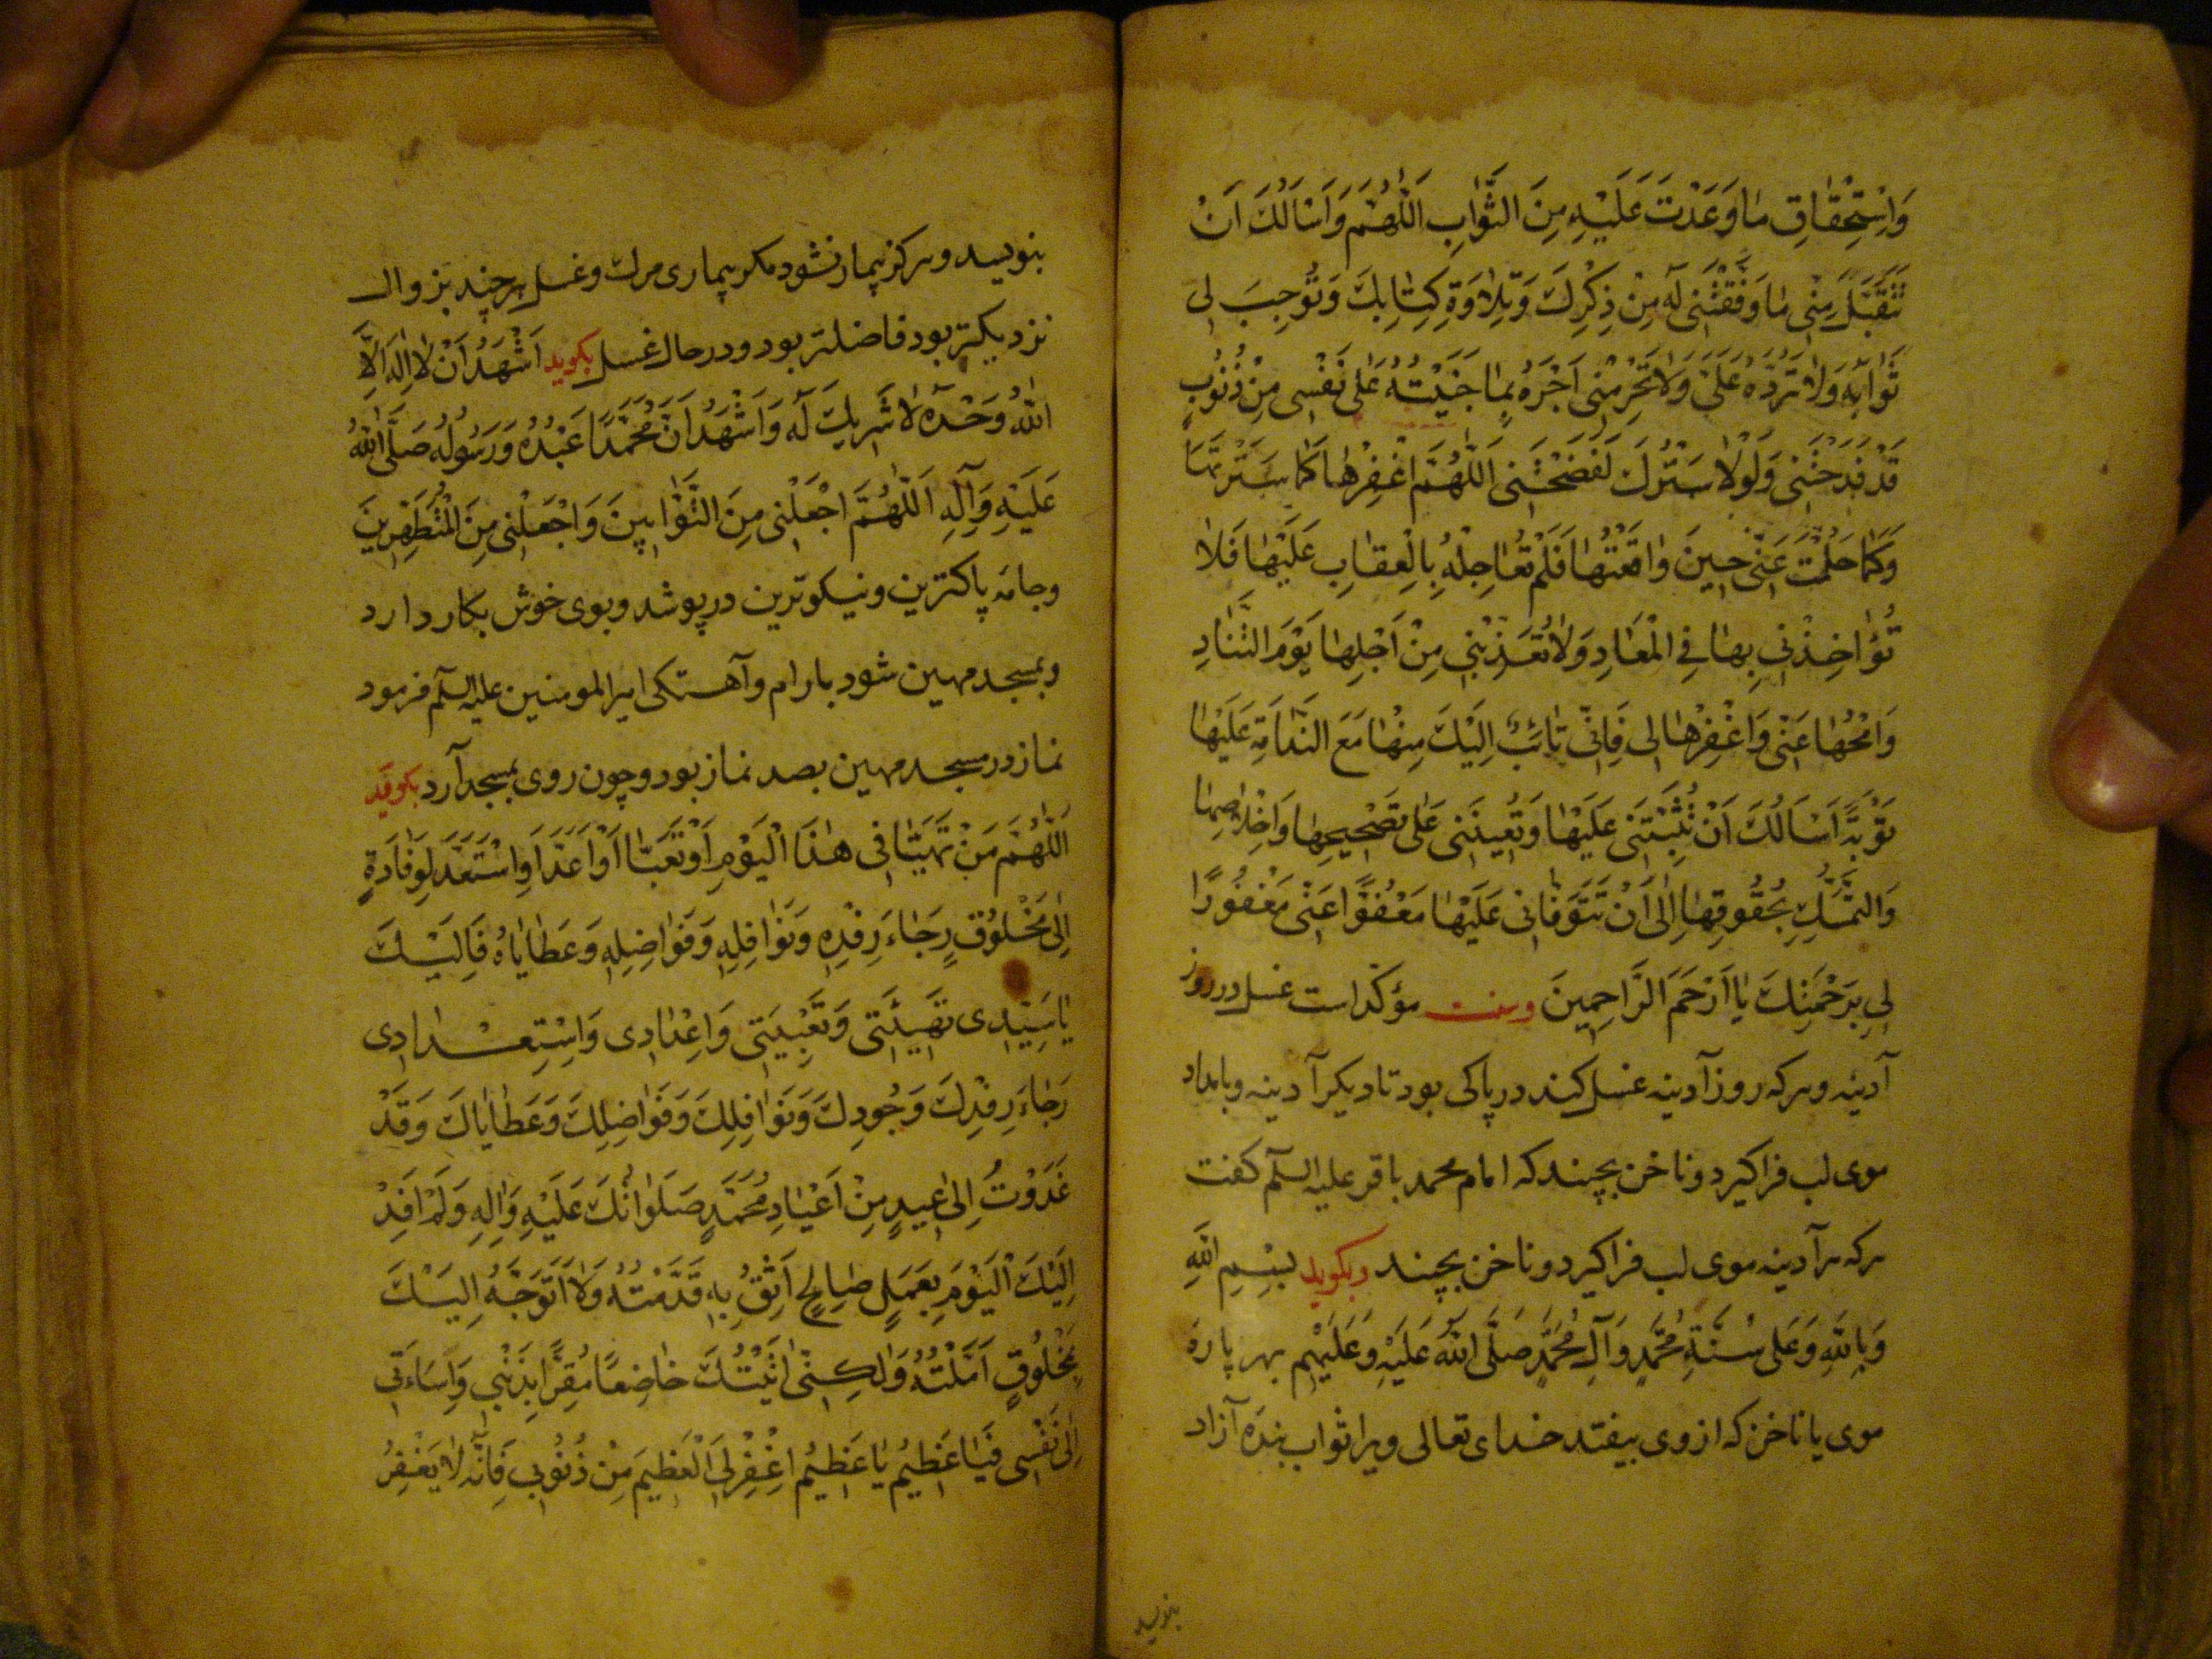 وَاسْتِحْقٰاقِ مٰا وَعَدْتَ عَلَيْهِ مِنَ الثَّوٰابِ اَللّٰهُمَّ وَاَسْاَلُكَ اَنْ
تَتَقَبَّلَ مِنّى مٰا وَفَّقْتَنى لَهُ مِنْ ذِكْرِكَ وَتِلٰاوَةِ كِتٰابِكَ وَتُوجِبَ لى
ثَوٰابَهُ وَلٰا تَرُدَّهُ عَلَىَّ وَلٰا تَحْرِمْنى اَجْرَهُ بِمٰا جَنَيْتُهُ عَلٰى نَفْسى مِنْ ذُنُوبٍ
قَدْ فَدَحَتْنى وَلَوْلٰا سَتْرُكَ لَفَضَحَتْنى اَللّٰهُمَّ اغْفِرْهٰا كَمٰا سَتَرْتَهٰا
وَكَمٰا حَلُمْتَ عَنّى حينَ وٰاقَعْتُهٰا فَلَمْ تُعٰاجِلْهُ بِالْعِقٰابِ عَلَيْهٰا فَلٰا
تُؤٰاخِذْنى بِهٰا فِى الْمَعٰادِ وَلٰا تُعَذِّبْنى مِنْ اَجْلِهٰا يَوْمَ التَّنٰادِ
وَامْحُهٰا عَنّى وَاغْفِرْهٰا لى فَاِنّى تٰائِبٌ اِلَيْكَ مِنْهٰا مَعَ النَّدٰامَةِ عَلَيْهٰا
تَوْبَةً اَسْاَلُكَ اَنْ تُثَبِّتَنى عَلَيْهٰا وَتُعينَنى عَلٰى تَصْحيحِهٰا وَاِخْلٰاصِهٰا
وَالتَّمَسُّكِ بِحُقُوقِهٰا اِلٰى اَنْ تَتَوَفّٰانى عَلَيْهٰا مَعْفُوًّا عَنّى مَغْفُورًا
لى بِرَحْمَتِكَ يٰا اَرْحَمَ الرَّاحِمينَ وسنت مؤكد است غسل در روز
آدينه وهركه روز آدينه غسل كند در پاكى بود تا ديكر آدينه وبامداد
موى لب فراكيرد وناخن بچيند كه امام محمد باقر عليه السلم كفت
هركه هر آدينه موى لب فراكيرد وناخن بچيند وبكويد بِسْمِ اللّٰهِ
وَبِاللّٰهِ وَعَلٰى سُنَّةِ مُحَمَّدٍ وَآلِ مُحَمَّدٍ صَلَّى اللّٰهُ عَلَيْهِ وَعَلَيْهِم بهر پاره
موى يا ناخن كه از وى بيفتد خداى تعالى ويرا ثواب بنده آزاد
بنويسد
بنويسد وهركز بيمار نشود مكر بيمارى مرك وغسل هرچند بزوال
نزديكتر بود فاضلتر بود ودر حال غسل بكويد اَشْهَدُ اَنْ لٰا اِلٰهَ اِلَّا
اللّٰهُ وَحْدَهُ لٰا شَريكَ لَهُ وَاَشْهَدُ اَنَّ مُحَمَّدًا عَبْدُهُ وَرَسُولُهُ صَلَّى اللّٰهُ
عَلَيْهِ وَآلِهِ اَللّٰهُمَّ اجْعَلْنى مِنَ التَّوّٰابينَ وَاجْعَلْنى مِنَ الْمُتَطَهِّرينَ
وجامه پاكترين ونيكوترين درپوشد وبوى خوش بكار دارد
وبمسجد مهين شود بارام وآهستكى امير المومنين عليه السلم فرمود
نماز در مسجد مهين بصد نماز بود وچون روى بمسجد آرد بكويد
اَللّٰهُمَّ مَنْ تَهَيَّأَ فى هٰذَا الْيَوْمِ اَوْ تَعَبَّأَ اَوْ اَعَدَّ اَوِ اسْتَعَدَّ لِوِفٰادَةٍ
اِلٰى مَخْلُوقٍ رَجٰاءَ رِفْدِهِ وَنَوٰافِلِهِ وَفَوٰاضِلِهِ وَعَطٰايٰاهُ فَاِلَيْكَ
يٰا سَيِّدى تَهْيِئَتى وَتَعْبِيَتى وَاِعْدٰادى وَاسْتِعْدٰادى
رَجٰاءَ رِفْدِكَ وَجُودِكَ وَنَوٰافِلِكَ وَفَوٰاضِلِكَ وَعَطٰايٰاكَ وَقَدْ
غَدَوْتُ اِلٰى عيدٍ مِنْ اَعْيٰادِ مُحَمَّدٍ صَلَوٰاتُكَ عَلَيْهِ وَاٰلِهِ وَلَمْ اَفِدْ
اِلَيْكَ الْيَوْمَ بِعَمَلٍ صٰالِحٍ اَثِقُ بِهِ قَدَّمْتُهُ وَلٰا اَتَوَجَّهُ اِلَيْكَ
بِمَخْلُوقٍ اَمَّلْتُهُ وَلٰكِنّى اَتَيْتُكَ خٰاضِعًا مُقِرًّا بِذَنْبى وَاِسٰاءَتى
اِلٰى نَفْسى فَيٰا عَظيمُ يٰا عَظيمُ اِغْفِرْ لِىَ الْعَظيمَ مِنْ ذُنُوبى فَاِنَّهُ لٰا يَغْفِرُ